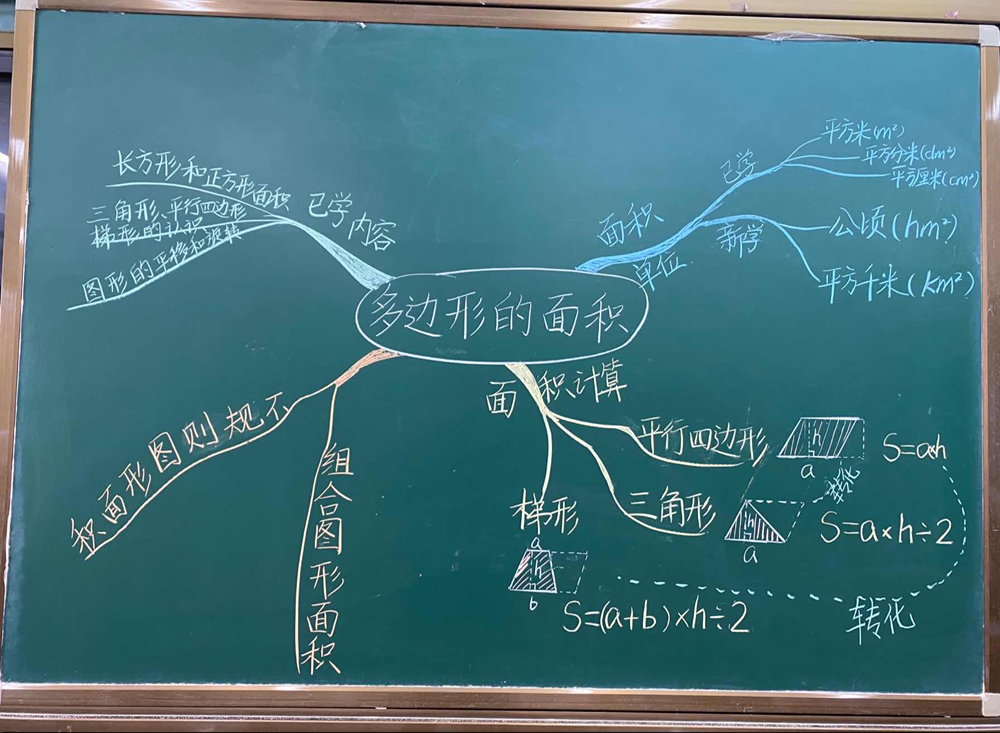 多边形的面积
已学内容
长方形和正方形面积
三角形、平行四边形
梯形的认识
图形的平移和旋转
面积
单位
已学
平方米(m²)
平方分米(dm²)
平方厘米(cm²)
新学
公顷(hm²)
平方千米(km²)
面积计算
平行四边形
h
a
S=a×h
转化
三角形
h
a
S=a×h÷2
梯形
a
h
b
S=(a+b)×h÷2
转化
不规则图形面积
组合图形面积